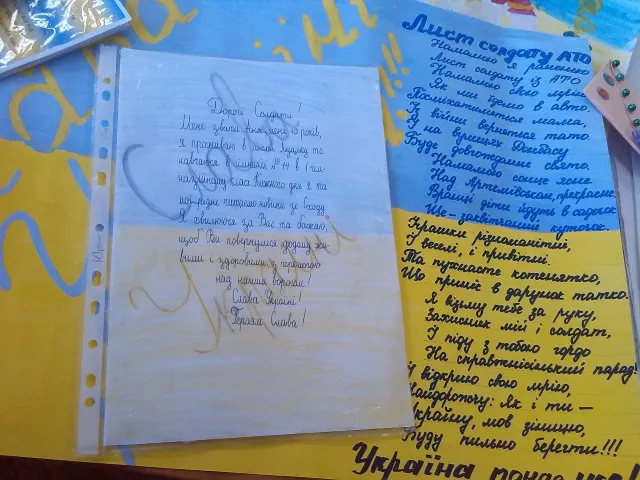 Дорогі Солдати!
Мене звати Анжеліка, 10 років,
я проживаю в місті Луцьку та
навчаюся в гімназії №14 в 1 гім-
назійному класі. Кожного дня я та
мої рідні чекаємо новини зі Сходу.
Я хвилююся за Вас та бажаю,
щоб Ви повернулися додому жи-
вими і здоровими, з перемогою
над нашим ворогом!
Слава Україні!
Героям Слава!
Слава
Україні
Лист солдату АТО
Намалюю я
Лист солдату із АТО
Намалюю свою мрію
Як ми їдемо в авто.
Посміхатиметься мама,
Із війни вернеться тато.
І на вулицях Донбасу
Буде довгождане свято.
Намалюю сонце ясне
Над Артемівськом, прекрасне,
Вранці діти йдуть в садочок
Ще — заквітчаний куточок.
Квашки різноманітні,
І веселі, і привітні.
Та пухнасте кошенятко,
Що приніс в дарунок татко.
Я візьму тебе за руку,
Захисник мій і солдат,
І піду з тобою гордо
На справжнісінький парад!
І відкрию свою мрію,
Найдорожчу: Як і ти —
Україну, мов зіницю,
Буду пильно берегти!!!
Україна понад